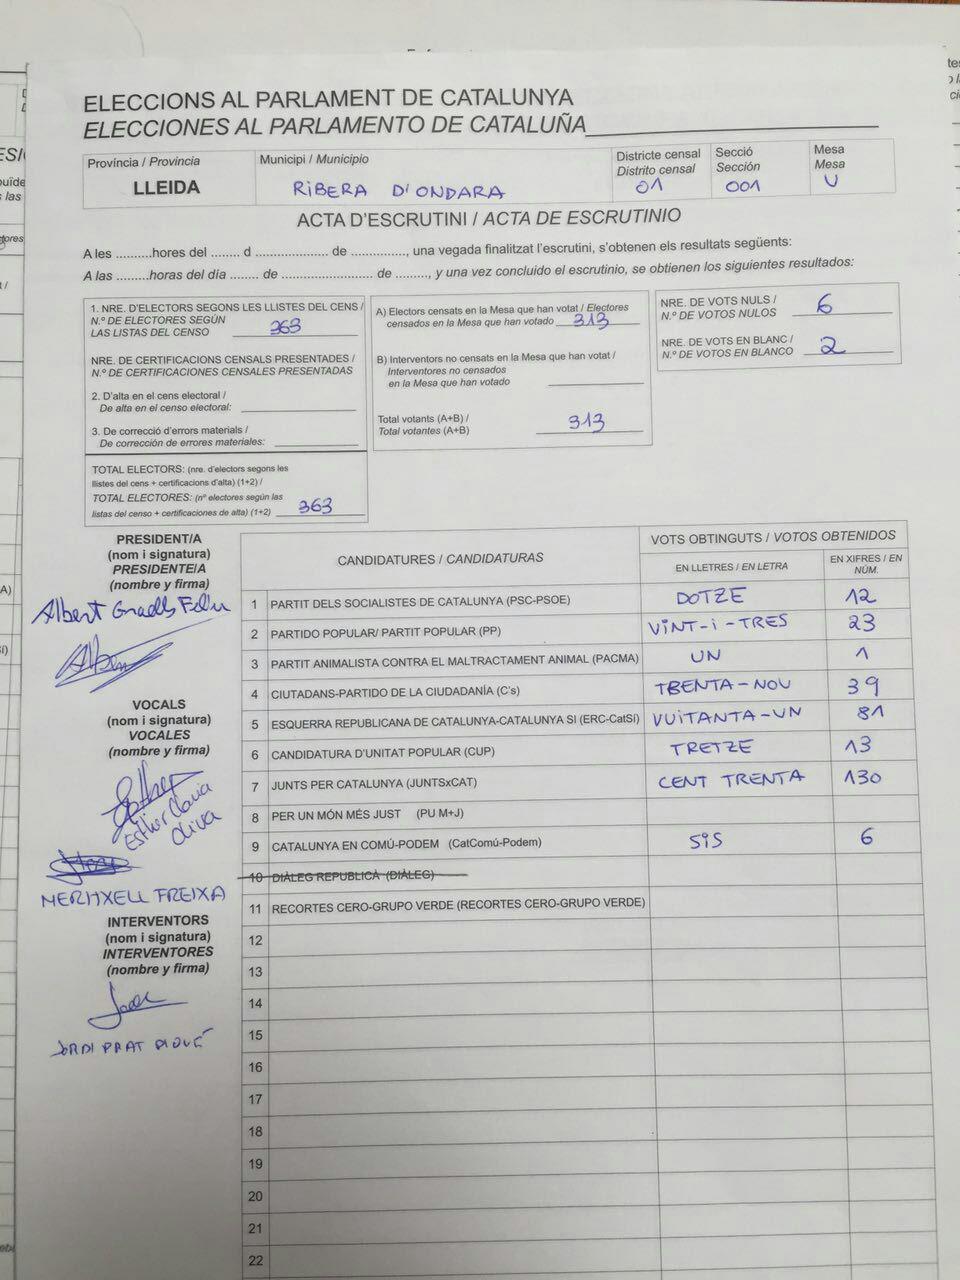 ELECCIONS AL PARLAMENT DE CATALUNYA
ELECCIONES AL PARLAMENTO DE CATALUÑA
Província / Provincia
LLEIDA
Municipi / Municipio
RIBERA D'ONDARA
Districte censal
Distrito censal
01
Secció
Sección
001
Mesa
Mesa
U
ACTA D'ESCRUTINI / ACTA DE ESCRUTINIO
A les ..........hores del ....... d ..................... de ..............., una vegada finalitzat l'escrutini, s'obtenen els resultats següents:
A las .........horas del día ....... de .......................... de ........., y una vez concluido el escrutinio, se obtienen los siguientes resultados:
1. NRE. D'ELECTORS SEGONS LES LLISTES DEL CENS /
N.º DE ELECTORES SEGÚN
LAS LISTAS DEL CENSO 363
NRE. DE CERTIFICACIONS CENSALS PRESENTADES /
N.º DE CERTIFICACIONES CENSALES PRESENTADAS
2. D'alta en el cens electoral /
De alta en el censo electoral:
3. De correcció d'errors materials /
De corrección de errores materiales:
TOTAL ELECTORS: (nre. d'electors segons les
llistes del cens + certificacions d'alta) (1+2) /
TOTAL ELECTORES: (nº electores según las
listas del censo + certificaciones de alta) (1+2) 363
A) Electors censats en la Mesa que han votat / Electores
censados en la Mesa que han votado 313
B) Interventors no censats en la Mesa que han votat /
Interventores no censados
en la Mesa que han votado
Total votants (A+B) /
Total votantes (A+B) 313
NRE. DE VOTS NULS /
N.º DE VOTOS NULOS 6
NRE. DE VOTS EN BLANC /
N.º DE VOTOS EN BLANCO 2
PRESIDENT/A
(nom i signatura)
PRESIDENTE/A
(nombre y firma)
Albert
VOCALS
(nom i signatura)
VOCALES
(nombre y firma)
Esther
Oliva
MERITXELL FREIXA
INTERVENTORS
(nom i signatura)
INTERVENTORES
(nombre y firma)
JORDI PRAT PIQUÉ
CANDIDATURES / CANDIDATURAS
VOTS OBTINGUTS / VOTOS OBTENIDOS
EN LLETRES / EN LETRA
EN XIFRES / EN
NÚM.
1 PARTIT DELS SOCIALISTES DE CATALUNYA (PSC-PSOE) DOTZE 12
2 PARTIDO POPULAR/ PARTIT POPULAR (PP) VINT-I-TRES 23
3 PARTIT ANIMALISTA CONTRA EL MALTRACTAMENT ANIMAL (PACMA) UN 1
4 CIUTADANS-PARTIDO DE LA CIUDADANÍA (C's) TRENTA-NOU 39
5 ESQUERRA REPUBLICANA DE CATALUNYA-CATALUNYA SI (ERC-CatSí) VUITANTA-UN 81
6 CANDIDATURA D'UNITAT POPULAR (CUP) TRETZE 13
7 JUNTS PER CATALUNYA (JUNTSxCAT) CENT TRENTA 130
8 PER UN MÓN MÉS JUST (PU M+J)
9 CATALUNYA EN COMÚ-PODEM (CatComú-Podem) SIS 6
10 DIÀLEG REPUBLICÀ (DIÀLEG)
11 RECORTES CERO-GRUPO VERDE (RECORTES CERO-GRUPO VERDE)
12
13
14
15
16
17
18
19
20
21
22